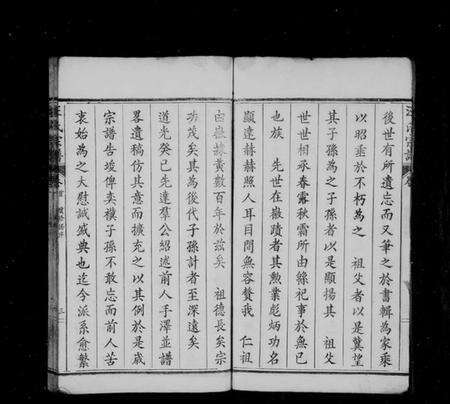 後世有所遺忘而又筆之於書輯為家乘
以昭垂於不朽為之　祖父者以是冀望
其子孫為之子孫者以是顯揚其　祖父
世世相承春露秋霜所由綿祀事於無已
也族　先世在嶽蹟者其勲業彪炳功名
顯達赫赫照人耳目間無容贅我　仁祖
由嶽旋黃數百年於茲矣　祖德長矣宗
功茂矣其為後代子孫計者至深遠矣
道光癸巳先達羣公紹述前人手澤並譜
畧遺稿仿其意而擴充之以其例於是歲
宗譜告竣俾奕禩子孫不敢忘而前人苦
衷始為之大慰誠盛典也迄今派系愈繁